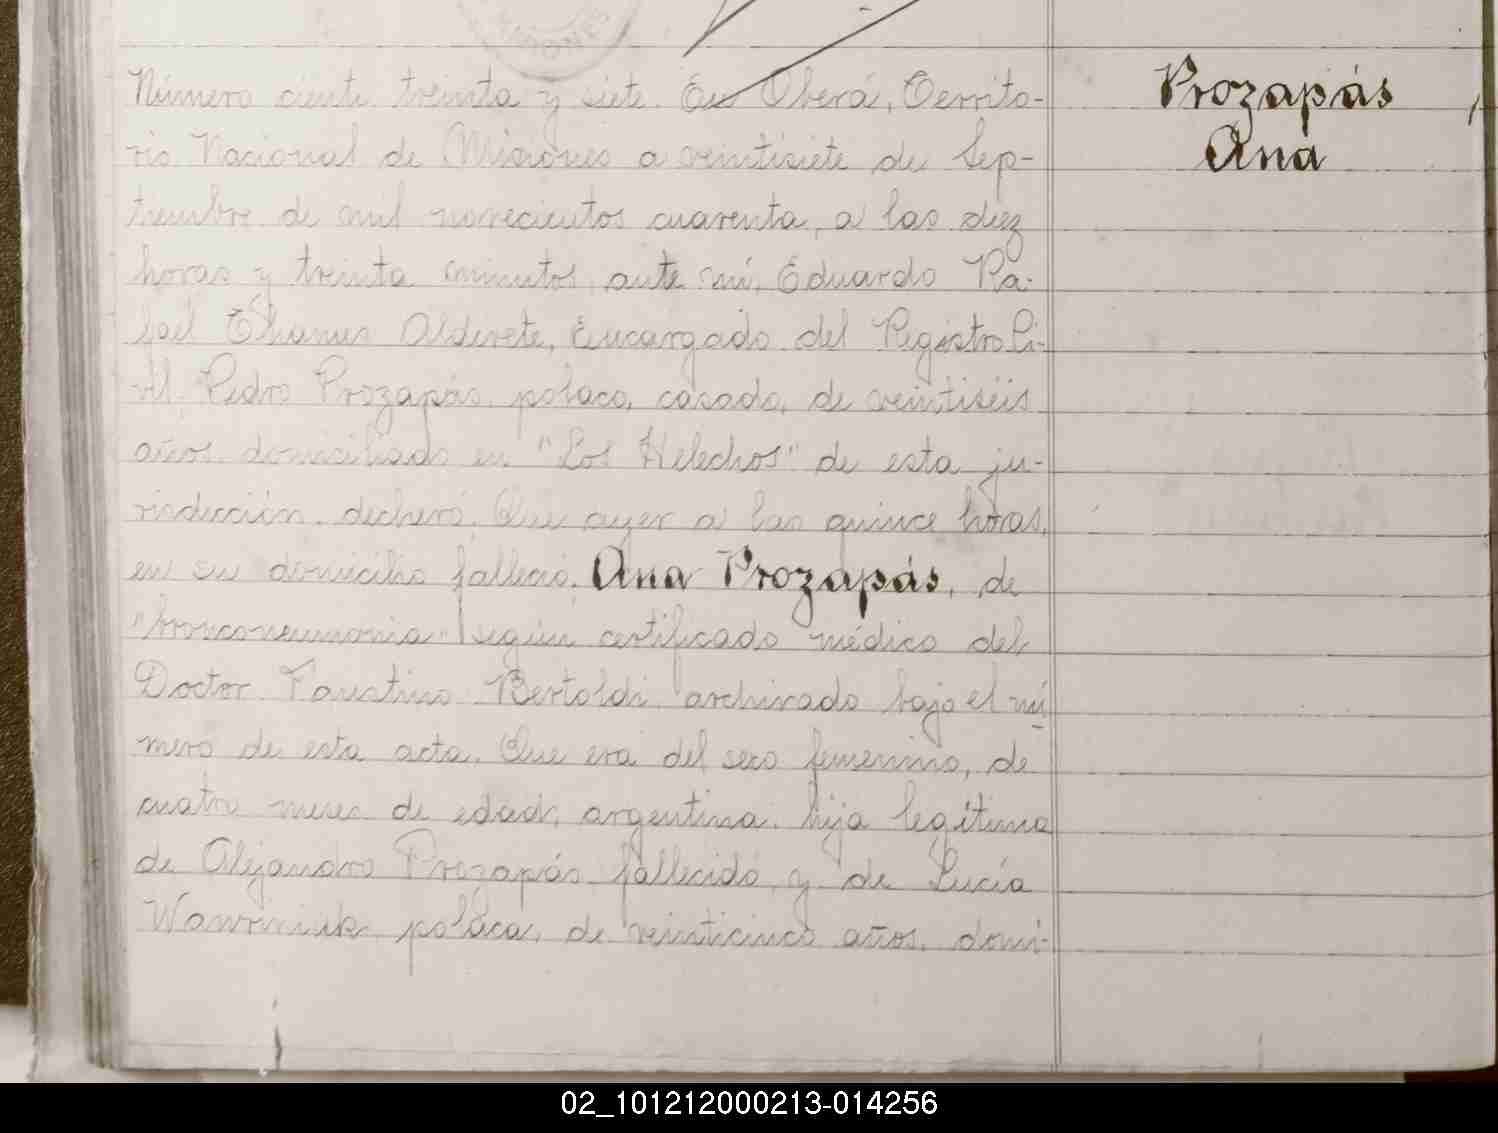 Número ciento treinta y siete. En Oberá, Territo-
rio Nacional de Misiones a veintisiete de Sep-
tiembre de mil novecientos cuarenta, a las diez
horas y treinta minutos, ante mí, Eduardo Ra-
fael Alderete, Encargado del Registro Ci-
vil, Pedro Prozapás, polaco, casado, de veintiséis
años, domiciliado en "Los Helechos" de esta ju-
risdicción, declaró: Que ayer a las quince horas,
en su domicilio falleció, Ana Prozapás, de
"bronconeumonia" según certificado médico del
Doctor Faustino Bertoldi, archivado bajo el nú-
mero de esta acta. Que era del sexo femenino, de
cuatro meses de edad, argentina, hija legítima
de Alejandro Prozapás fallecido, y de Lucía
Wawriniuk, polaca, de veinticinco años, domi-
Prozapás
Ana
02_101212000213-014256